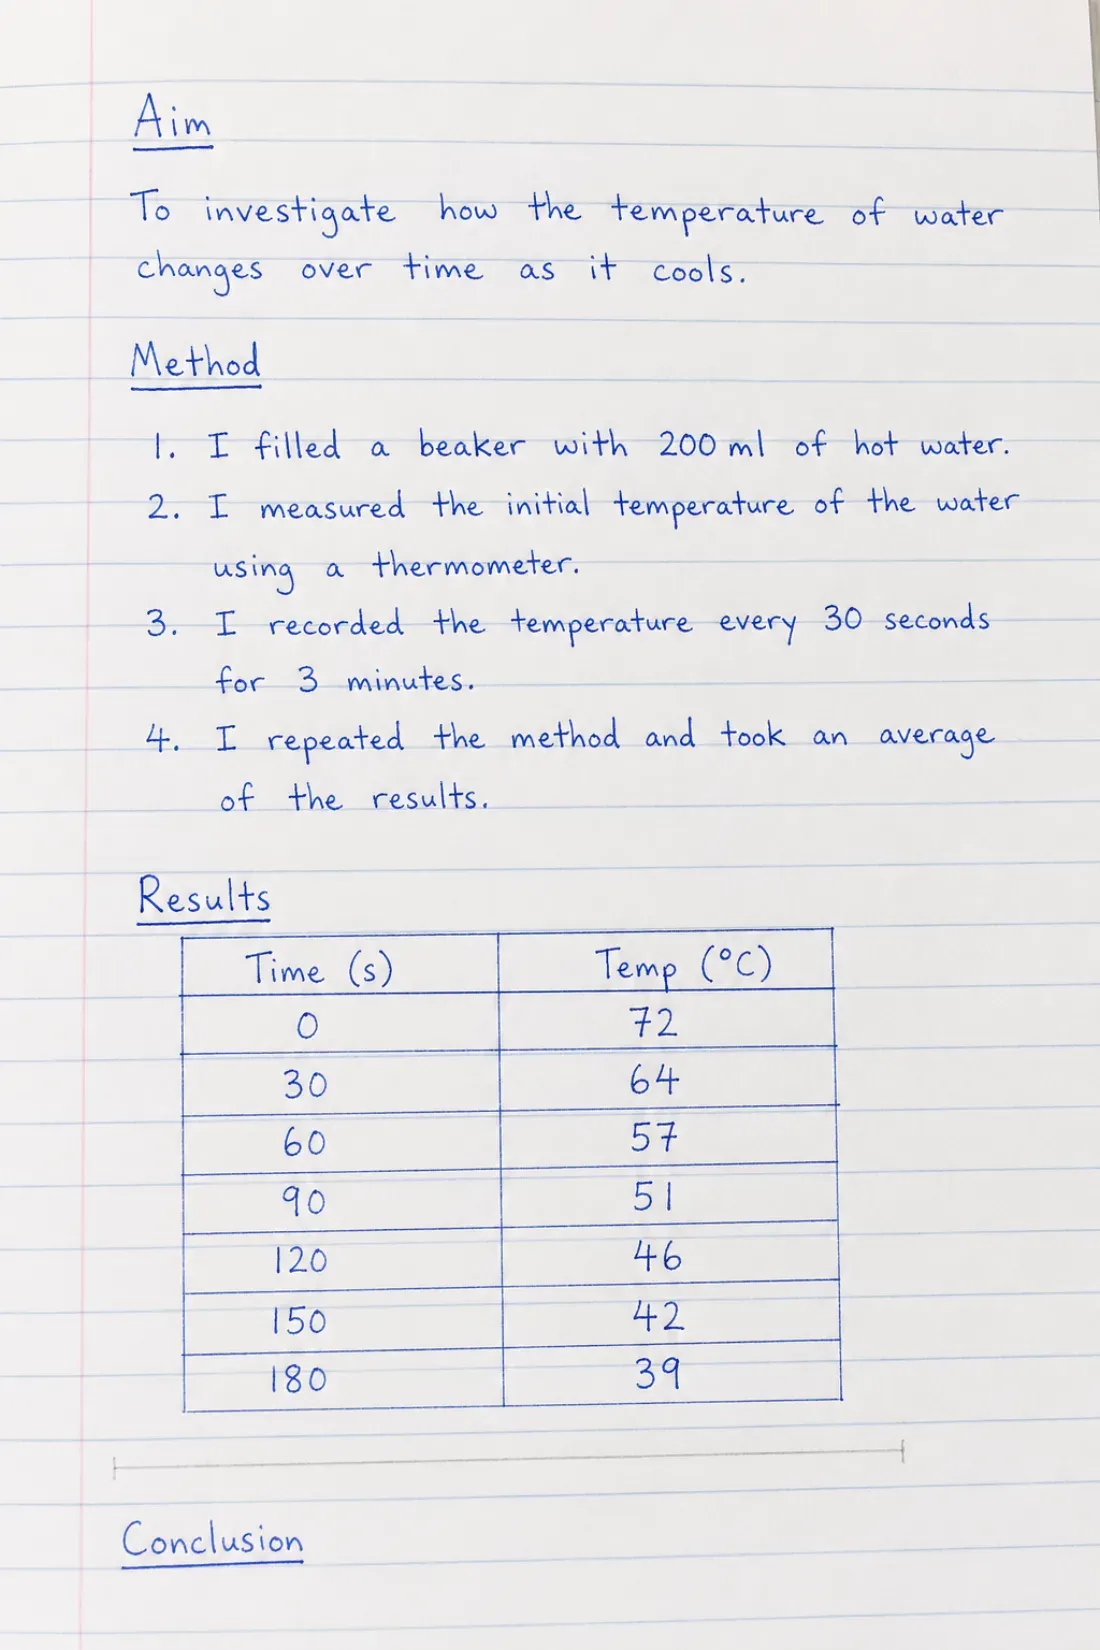 Aim
To investigate how the temperature of water
changes over time as it cools.
Method
1. I filled a beaker with 200 ml of hot water.
2. I measured the initial temperature of the water
using a thermometer.
3. I recorded the temperature every 30 seconds
for 3 minutes.
4. I repeated the method and took an average
of the results.
Results
Time (s) Temp (°C)
0 72
30 64
60 57
90 51
120 46
150 42
180 39
Conclusion